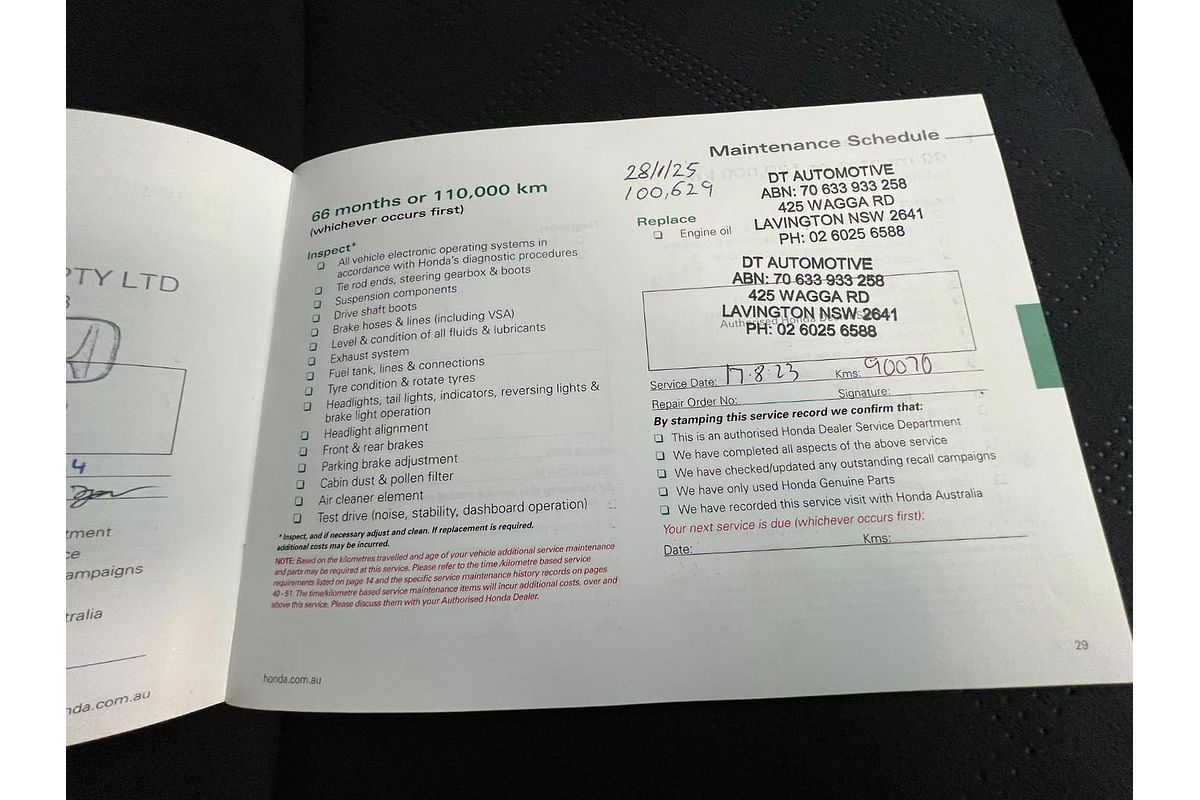 PTY LTD
4
tment
ce
ampaigns
tralia
nda.com.au
66 months or 110,000 km
(whichever occurs first)
Inspect*
All vehicle electronic operating systems in
accordance with Honda's diagnostic procedures
Tie rod ends, steering gearbox & boots
Suspension components
Drive shaft boots
Brake hoses & lines (including VSA)
Level & condition of all fluids & lubricants
Exhaust system
Fuel tank, lines & connections
Tyre condition & rotate tyres
Headlights, tail lights, indicators, reversing lights &
brake light operation
Headlight alignment
Front & rear brakes
Parking brake adjustment
Cabin dust & pollen filter
Air cleaner element
Test drive (noise, stability, dashboard operation)
* Inspect, and if necessary adjust and clean. If replacement is required,
additional costs may be incurred.
NOTE: Based on the kilometres travelled and age of your vehicle additional service maintenance
and parts may be required at this service. Please refer to the time/kilometre based service
requirements listed on page 14 and the specific service maintenance history records on pages
40 - 51. The time/kilometre based service maintenance items will incur additional costs, over and
above this service. Please discuss them with your Authorised Honda Dealer.
honda.com.au
Maintenance Schedule
28/1/25
100,629
DT AUTOMOTIVE
ABN: 70 633 933 258
425 WAGGA RD
LAVINGTON NSW 2641
PH: 02 6025 6588
Replace
Engine oil
DT AUTOMOTIVE
ABN: 70 633 933 258
425 WAGGA RD
LAVINGTON NSW 2641
PH: 02 6025 6588
Authorised Honda
Service Date: 17.8.23 Kms: 90070
Repair Order No: Signature:
By stamping this service record we confirm that:
This is an authorised Honda Dealer Service Department
We have completed all aspects of the above service
We have checked/updated any outstanding recall campaigns
We have only used Honda Genuine Parts
We have recorded this service visit with Honda Australia
Your next service is due (whichever occurs first):
Date: Kms:
29